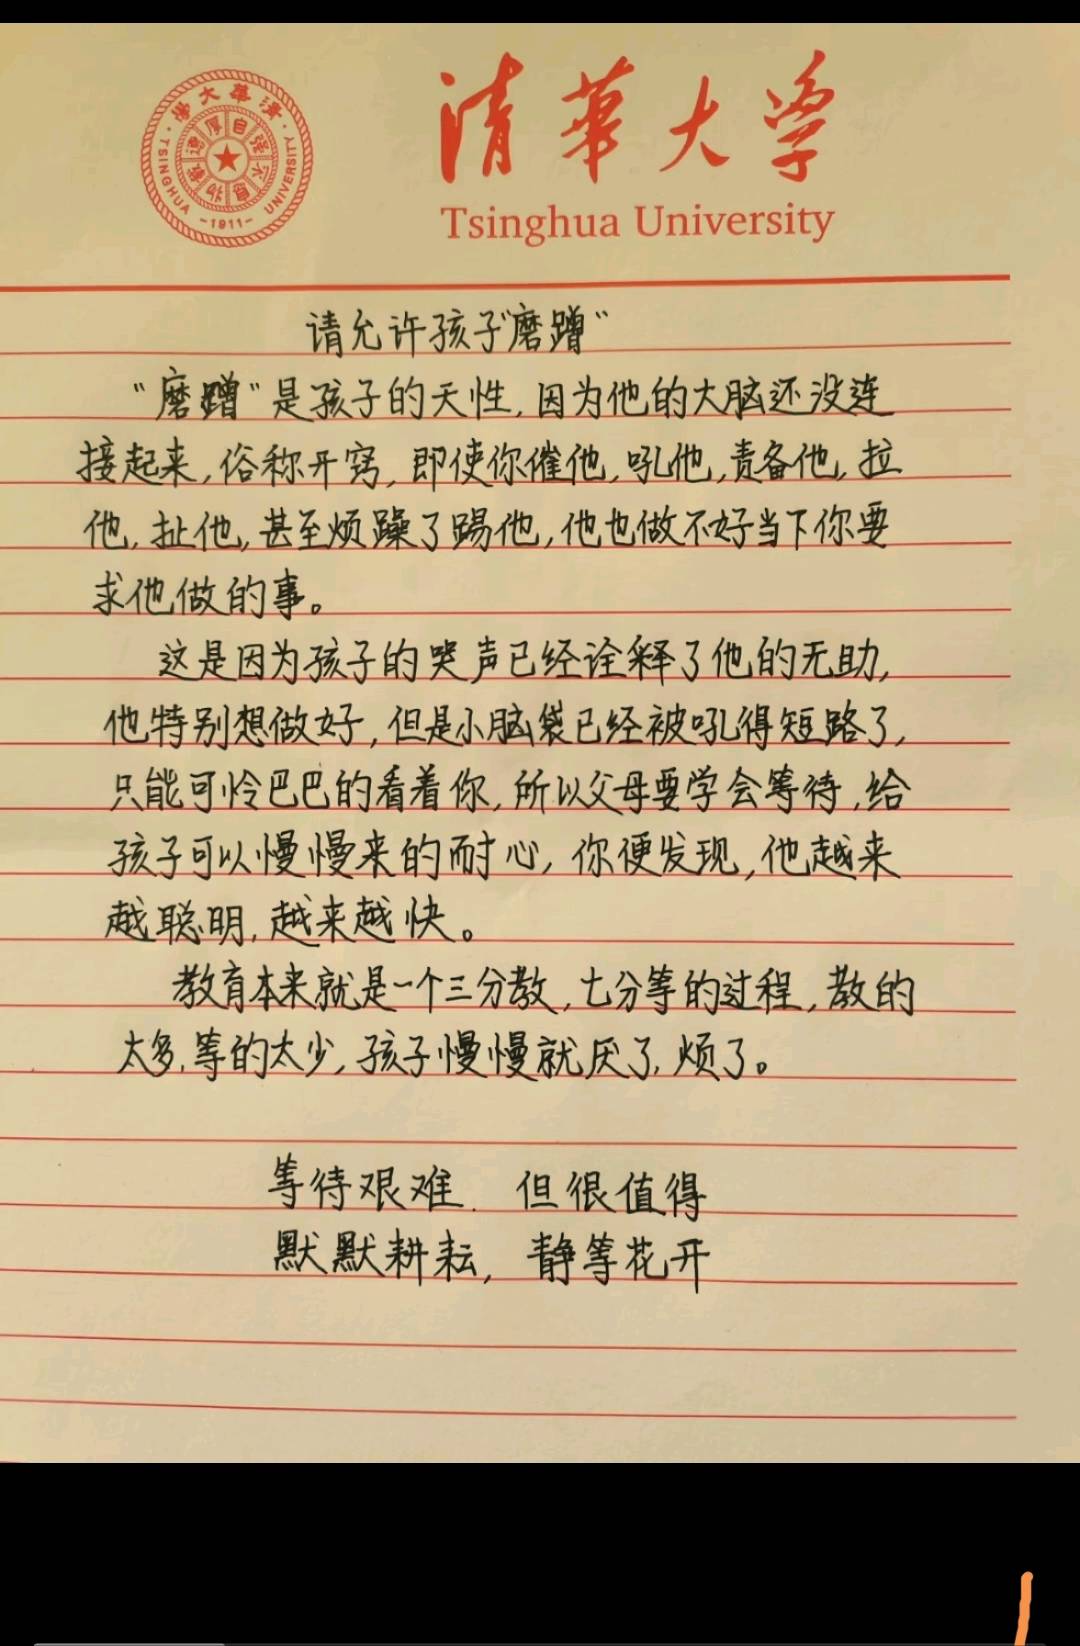 清華大学
Tsinghua University
清華大學
TSINGHUA UNIVERSITY
自强不息
厚德載物
-1911-
请允许孩子“磨蹭”
“磨蹭”是孩子的天性,因为他的大脑还没连
接起来,俗称开窍,即使你催他,吼他,责备他,拉
他,扯他,甚至烦躁了踢他,他也做不好当下你要
求他做的事。
这是因为孩子的哭声已经诠释了他的无助,
他特别想做好,但是小脑袋已经被吼得短路了,
只能可怜巴巴的看着你,所以父母要学会等待,给
孩子可以慢慢来的耐心,你便发现,他越来
越聪明,越来越快。
教育本来就是一个三分教,七分等的过程,教的
太多,等的太少,孩子慢慢就厌了,烦了。
等待艰难.但很值得
默默耕耘,静等花开